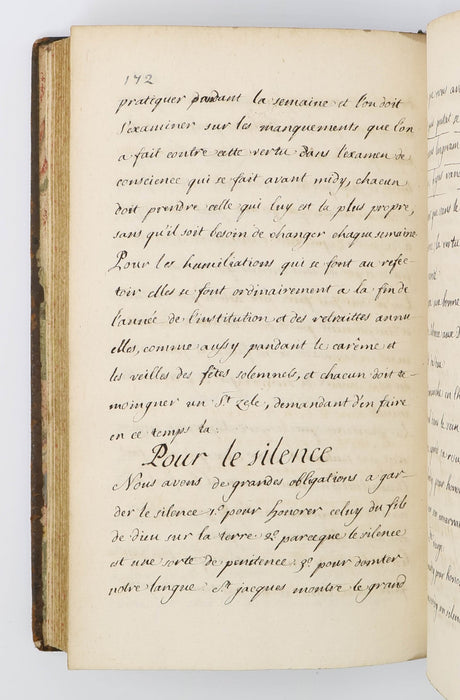 172
pratiquer pandant la semaine et l'on doit
s'examiner sur les manquements que l'on
a fait contre cette vertu dans l'examen de
conscience qui se fait avant midy, chacun
doit prendre celle qui luy est la plus propre,
sans qu'il soit besoin de changer chaque semaine
Pour les humiliations qui se font au refec
toir elles se font ordinairement a la fin de
l'année de l'institution et des retraittes annu
elles, comme aussy pandant le carême et
les veilles des fêtes solemnels, et chacun doit te
moingner un St. zele, demandant d'en faire
en ce temps la.
Pour le silence
Nous avons de grandes obligations a gar
der le silence 1.º pour honorer celuy du fils
de dieu sur la terre 2.º parceque le silence
est une sorte de penitence: 3.º pour domter
notre langue: St. jacques montre le grand